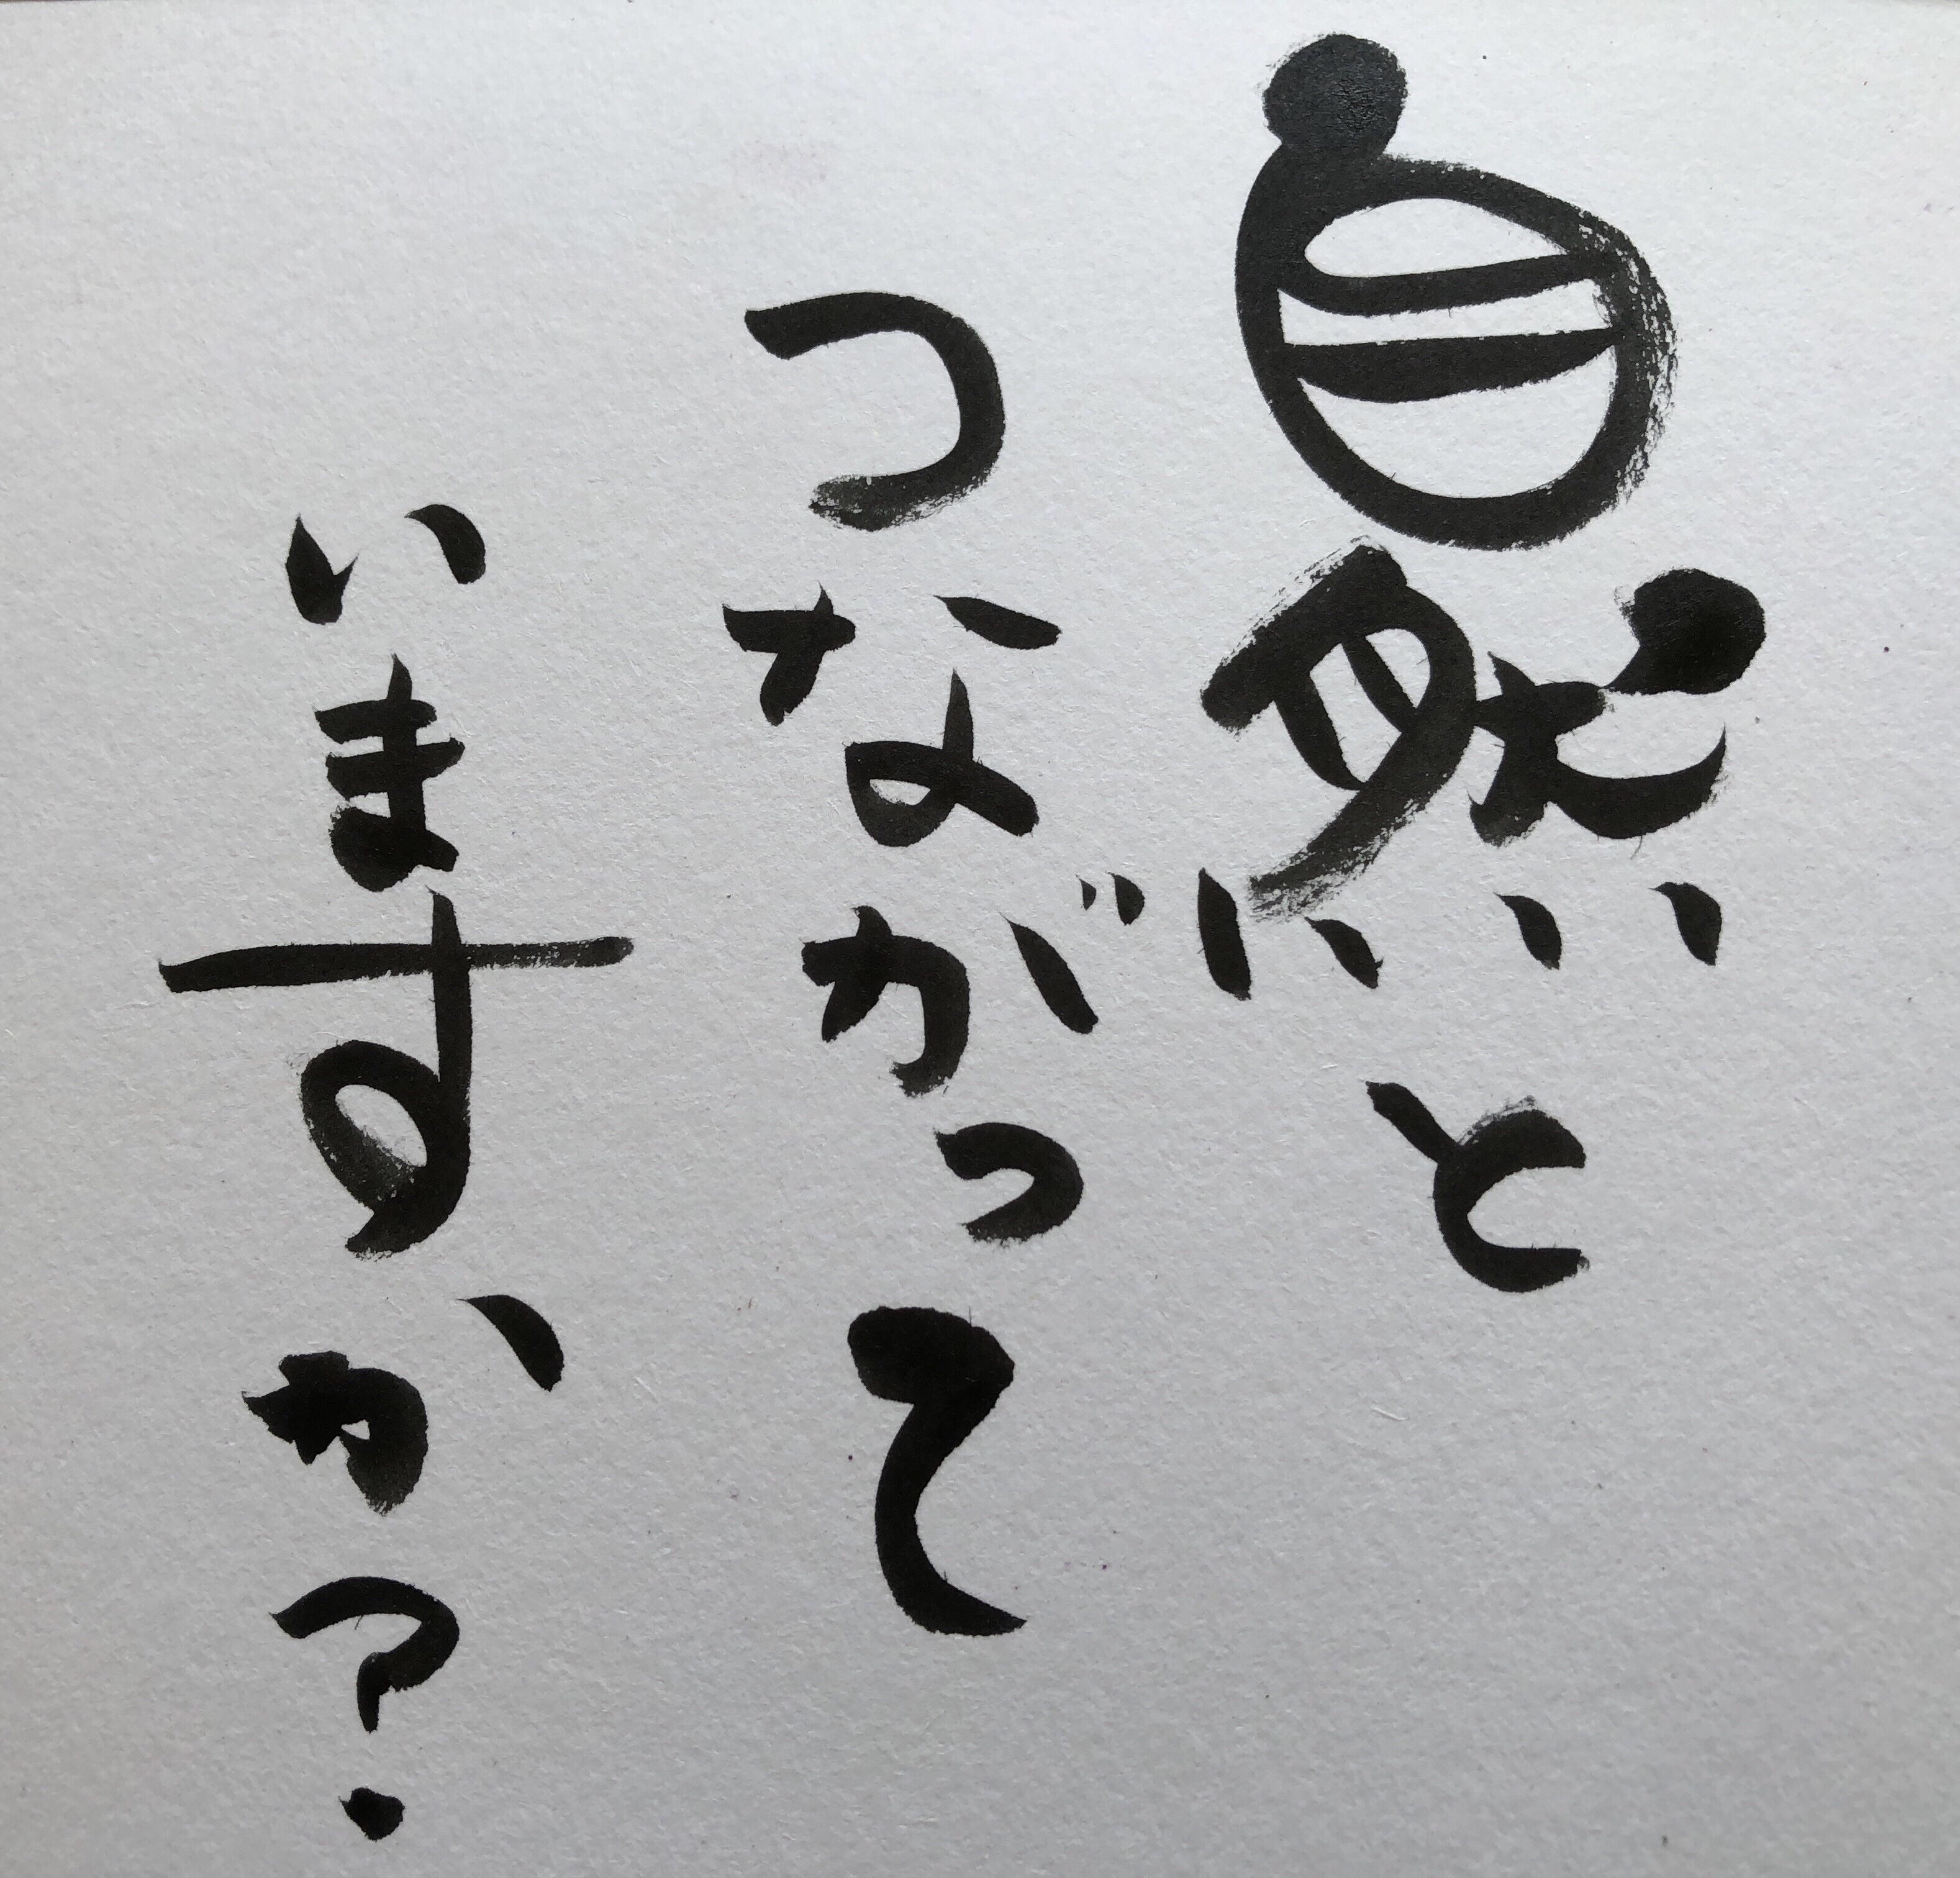 自然と
つながって
いますか?